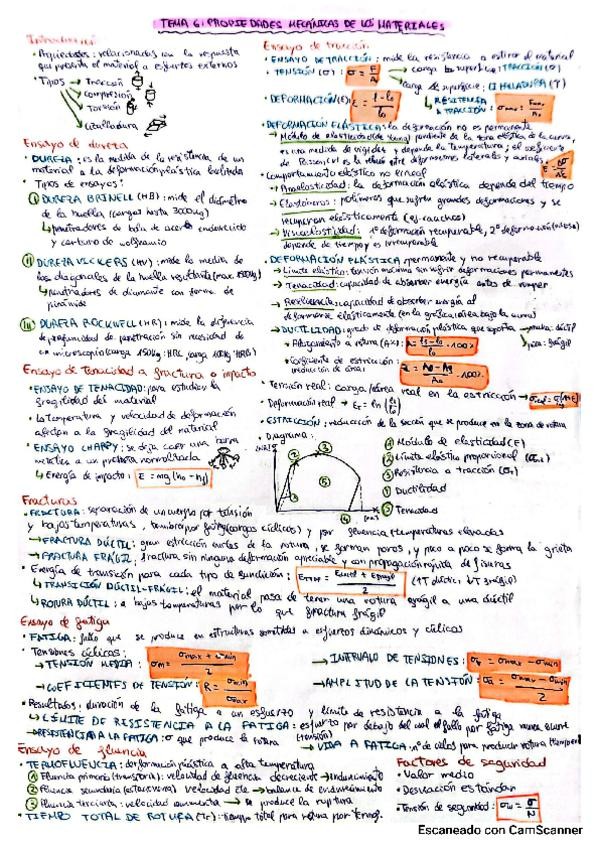 TEMA 6: PROPIEDADES MECÁNICAS DE LOS MATERIALES
Introducción
• Propiedades: relacionadas con la respuesta
que presenta el material a esfuerzos externos
• Tipos → Tracción
→ Compresión
→ Torsión
→ Cizalladura
Ensayo de dureza
• DUREZA: es la medida de la resistencia de un
material a la deformación plástica localizada
• Tipos de ensayos:
I DUREZA BRINELL (HB): mide el diámetro
de la huella (cargas hasta 3000kg)
↳ penetradores de bola de acero endurecido
y carburo de wolframio
II DUREZA VICKERS (HV): mide la medida de
las diagonales de la huella resultante (max.
↳ penetradores de diamante con forma de
pirámide
III DUREZA ROCKWELL (HR): mide la diferencia
de profundidad de penetración sin necesidad de
un microscopio (carga 150kg: HRC, carga 100kg: HRB)
Ensayo de Tenacidad a fractura o impacto
• ENSAYO DE TENACIDAD: para estudiar la
fragilidad del material
• La temperatura y velocidad de deformación
afectan a la fragilidad del material
• ENSAYO CHARPY: se deja caer una
a una probeta normalizada
↳ Energía de impacto: E = mg(h₀ - hf)
Ensayo de tracción
• ENSAYO DE TRACCIÓN: mide la resistencia a estirar el material
• TENSIÓN (σ): σ = F/A → carga ⊥ superficie: TRACCIÓN (σ)
→ carga superficie: CIZALLADURA (τ)
• DEFORMACIÓN (ε): ε = l - l₀ / l₀ ↳ RESISTENCIA A TRACCIÓN: σmax = Fmax / A₀
• DEFORMACIÓN ELÁSTICA: la deformación no es permanente
→ Módulo de elasticidad pendiente de la zona elástica de la curva,
es una medida de rigidez y depende la temperatura; el
de Poisson (ν) es la deformaciones laterales y axiales. E = Δσ/Δε
• Comportamiento elástico no lineal
→ Anelasticidad: la deformación elástica depende del tiempo
→ Elastómeros: polímeros que sufren grandes deformaciones y se
recuperan elásticamente (ej: cauchos)
→ Viscoelasticidad: 1º deformación recuperable, 2º deformación
depende de tiempo y es irrecuperable
• DEFORMACIÓN PLÁSTICA: permanente y no recuperable
→ Límite elástico: tensión máxima sin sufrir deformaciones permanentes
→ Tenacidad: capacidad de absorber energía antes de romper
→ Resiliencia: capacidad de absorber energía al
deformarse elásticamente (en la gráfica: área bajo la curva)
→ DUCTILIDAD: grado de deformación plástica que soporta → mucha: dúctil
→ poca: frágil
• Alargamiento a rotura (A%): A = lf - l₀ / l₀ · 100%
• Coeficiente de estricción: reducción de área Z = A₀ - Af / A₀ · 100%
• Tensión real: carga/área real en la estricción → σreal = σ(1+ε)
• Deformación real → εr = ln(
• ESTRICCIÓN: reducción de la sección que se produce en la zona de rotura
• Diagrama:
① Módulo de elasticidad (E)
② Límite elástico proporcional
③ Resistencia a tracción
④ Ductilidad
⑤ Tenacidad
Fracturas
• FRACTURA: separación de un cuerpo por tensión
y bajas temperaturas, también por fatiga (cargas cíclicas) y por fluencia (temperaturas elevadas)
↳ FRACTURA DÚCTIL: gran estricción antes de la rotura, se forman poros, y poco a poco se forma la grieta
↳ FRACTURA FRÁGIL: fractura sin ninguna deformación apreciable y con propagación rápida de fisuras
• Energía de transición para cada tipo de fundición: / 2 (↑T dúctil; ↓T frágil)
↳ TRANSICIÓN DÚCTIL-FRÁGIL: el material pasa de tener una rotura frágil a una dúctil
↳ ROTURA DÚCTIL: a bajas temperaturas por lo que fractura frágil
Ensayo de fatiga
• FATIGA: fallo que se produce en estructuras sometidas a esfuerzos dinámicos y cíclicos
• Tensiones cíclicas:
→ TENSIÓN MEDIA: σm = σmax + σmin / 2
→ INTERVALO DE TENSIONES: σr = σmax - σmin
→ COEFICIENTES DE TENSIÓN: R = σmin / σmax
→ AMPLITUD DE LA TENSIÓN: σa = σmax - σmin / 2
• Resultados: duración de la fatiga a un esfuerzo y límite de resistencia a la fatiga
↳ LÍMITE DE RESISTENCIA A LA FATIGA: esfuerzo por debajo del cual el fallo por fatiga nunca ocurre
→ RESISTENCIA A LA FATIGA: σ que produce la rotura (tensión) → VIDA A FATIGA: nº de ciclos para producir rotura
Ensayo de fluencia
• TERMOFLUENCIA: deformación plástica a alta temperatura
① Fluencia primaria (transitoria): velocidad de fluencia decreciente → endurecimiento
② Fluencia secundaria (estacionaria) velocidad cte → balance de endurecimiento
③ Fluencia terciaria: velocidad aumenta → se produce la ruptura
• TIEMPO TOTAL DE ROTURA (tr): tiempo total para rotura por
Factores de seguridad
• Valor medio
• Desviación estándar
• Tensión de seguridad: σw = σ/N
Escaneado con CamScanner